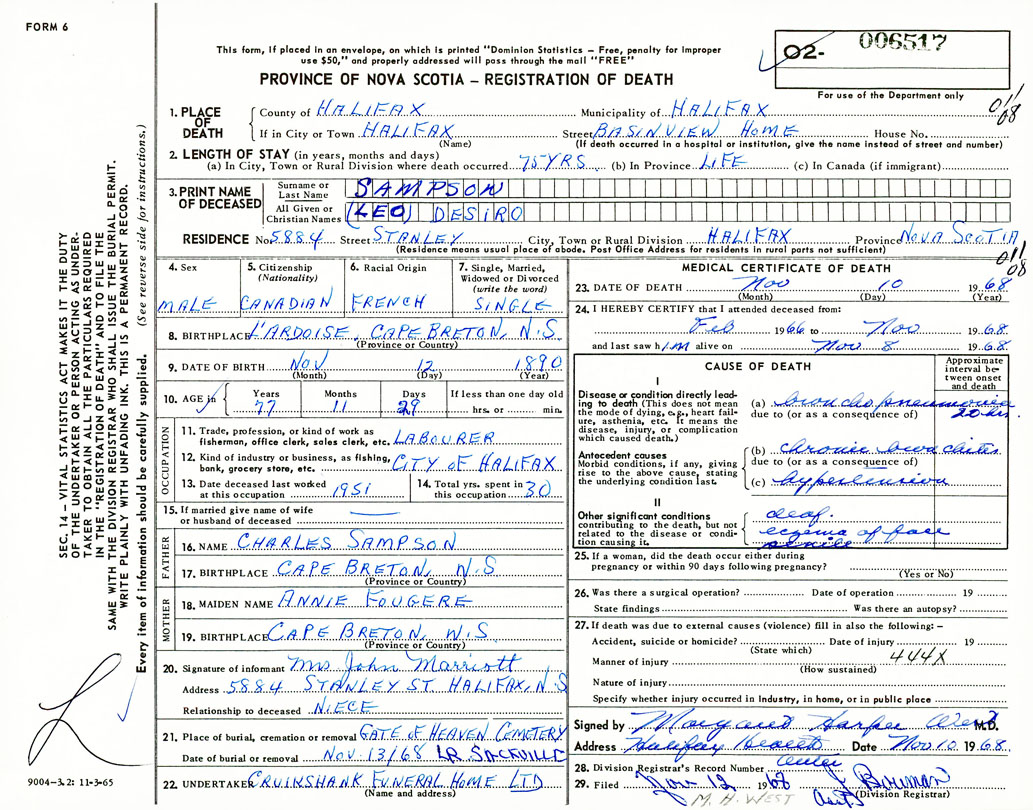 FORM 6
This form, if placed in an envelope, on which is printed "Dominion Statistics – Free, penalty for improper
use $50," and properly addressed will pass through the mail "FREE"
PROVINCE OF NOVA SCOTIA – REGISTRATION OF DEATH
O2- 006517
For use of the Department only
011
08
1. PLACE OF DEATH
County of HALIFAX Municipality of HALIFAX
If in City or Town HALIFAX Street BASINVIEW HOME House No.
(Name) (If death occurred in a hospital or institution, give the name instead of street and number)
2. LENGTH OF STAY (in years, months and days)
(a) In City, Town or Rural Division where death occurred 75 YRS (b) In Province LIFE (c) In Canada (if immigrant)
3. PRINT NAME OF DECEASED
Surname or Last Name SAMPSON
All Given or Christian Names (LEO) DESIRO
RESIDENCE No. 5884 Street STANLEY City, Town or Rural Division HALIFAX Province NOVA SCOTIA
(Residence means usual place of abode. Post Office Address for residents in rural parts not sufficient)
011
08
4. Sex MALE
5. Citizenship (Nationality) CANADIAN
6. Racial Origin FRENCH
7. Single, Married, Widowed or Divorced (write the word) SINGLE
8. BIRTHPLACE L'ARDOISE, CAPE BRETON, N.S
(Province or Country)
9. DATE OF BIRTH NOV 12 1890
(Month) (Day) (Year)
10. AGE in Years 77 Months 11 Days 29 If less than one day old hrs. or min.
OCCUPATION
11. Trade, profession, or kind of work as
fisherman, office clerk, sales clerk, etc. LABOURER
12. Kind of industry or business, as fishing,
bank, grocery store, etc. CITY OF HALIFAX
13. Date deceased last worked at this occupation 1951
14. Total yrs. spent in this occupation 30
15. If married give name of wife
or husband of deceased
FATHER
16. NAME CHARLES SAMPSON
17. BIRTHPLACE CAPE BRETON, N.S
(Province or Country)
MOTHER
18. MAIDEN NAME ANNIE FOUGERE
19. BIRTHPLACE CAPE BRETON, N.S.
(Province or Country)
20. Signature of informant Mrs John Marriott
Address 5884 STANLEY ST. HALIFAX, N.S
Relationship to deceased NIECE
21. Place of burial, cremation or removal GATE OF HEAVEN CEMETERY
Date of burial or removal NOV. 13/68 LR. SACKVILLE
22. UNDERTAKER CRUIKSHANK FUNERAL HOME LTD
(Name and address)
MEDICAL CERTIFICATE OF DEATH
23. DATE OF DEATH Nov 10 1968
(Month) (Day) (Year)
24. I HEREBY CERTIFY that I attended deceased from:
Feb 1966 to Nov 1968
and last saw him alive on Nov 8 1968
CAUSE OF DEATH
Approximate interval be-
tween onset
and death
I
Disease or condition directly lead-
ing to death (This does not mean
the mode of dying, e.g., heart fail-
ure, asthenia, etc. It means the
disease, injury, or complication
which caused death.)
(a) bronchopneumonia
due to (or as a consequence of) 20 hrs.
Antecedent causes
Morbid conditions, if any, giving
rise to the above cause, stating
the underlying condition last.
(b) chronic bronchitis
due to (or as a consequence of)
(c) hypertension
II
Other significant conditions
contributing to the death, but not
related to the disease or condi-
tion causing it.
deaf.
eczema of face
senile
25. If a woman, did the death occur either during
pregnancy or within 90 days following pregnancy?
(Yes or No)
26. Was there a surgical operation? Date of operation 19
State findings Was there an autopsy?
27. If death was due to external causes (violence) fill in also the following: –
Accident, suicide or homicide? Date of injury 19
(State which)
Manner of injury 444X
(How sustained)
Nature of injury
Specify whether injury occurred in Industry, in home, or in public place
Signed by Margaret Harper West M.D.
Address Halifax Health Center Date Nov 10 1968
28. Division Registrar's Record Number
29. Filed Nov 12 1968 J Bowman
M. H. WEST
(Division Registrar)
SEC. 14 – VITAL STATISTICS ACT MAKES IT THE DUTY
OF THE UNDERTAKER OR PERSON ACTING AS UNDER-
TAKER TO OBTAIN ALL THE PARTICULARS REQUIRED
IN THE "REGISTRATION OF DEATH" AND TO FILE THE
SAME WITH THE DIVISION REGISTRAR WHO SHALL ISSUE THE BURIAL PERMIT.
WRITE PLAINLY WITH UNFADING INK. THIS IS A PERMANENT RECORD.
Every item of information should be carefully supplied. (See reverse side for instructions.)
9004-3.2: 11-3-65